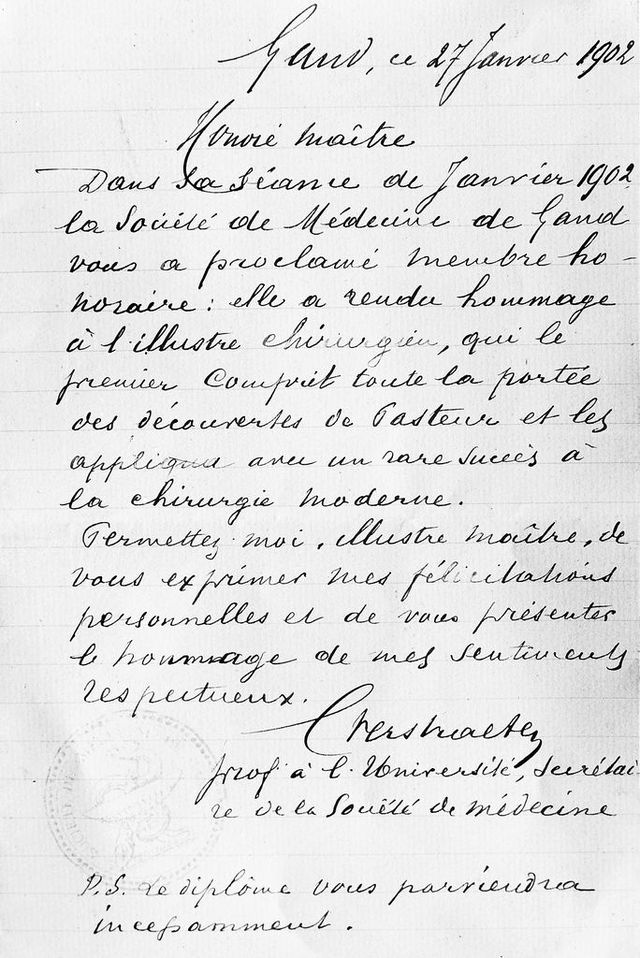 Gand, ce 27 Janvier 1902
Honoré Maître
Dans sa séance de Janvier 1902
la Société de Médecine de Gand
vous a proclamé membre ho-
noraire : elle a rendu hommage
à l'illustre chirurgien, qui le
premier comprit toute la portée
des découvertes de Pasteur et les
appliqua avec un rare succès à
la chirurgie moderne.
Permettez moi, illustre maître, de
vous exprimer mes félicitations
personnelles et de vous présenter
le hommage de mes sentiments
respectueux.
C Verstraeten
prof à l'Université, secrétai
re de la Société de médecine
P.S. Le diplôme vous parviendra
incessamment.